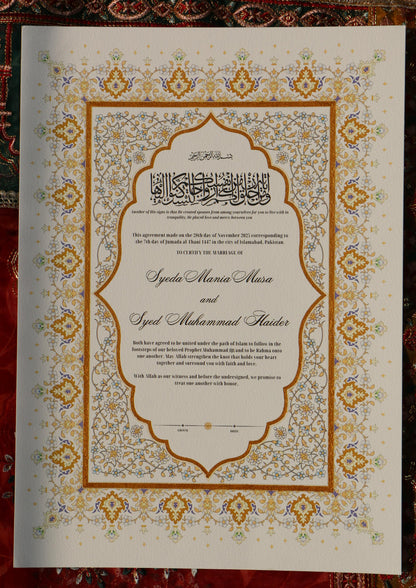 بسم الله الرحمن الرحيم
Another of His signs is that He created spouses from among yourselves for you to live with in
tranquility, He placed love and mercy between you
This agreement made on the 28th day of November 2025 corresponding to
the 7th day of Jumada al Thani 1447 in the city of Islamabad, Pakistan.
TO CERTIFY THE MARRIAGE OF
Syeda Mania Musa
and
Syed Muhammad Haider
Both have agreed to be united under the path of Islam to follow in the
footsteps of our beloved Prophet Muhammad ﷺ and to be Rahma onto
one another. May Allah strengthen the knot that holds your heart
together and surround you with faith and love.
With Allah as our witness and before the undersigned, we promise to
treat one another with honor.
GROOM BRIDE